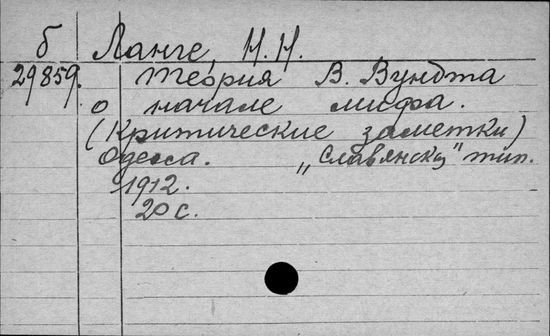 б Ланге, Н.Н.
29859. Теория В. Вундта
о начале мифа.
(Критические заметки)
Одесса. „Славянск" тип.
1912.
20 с.